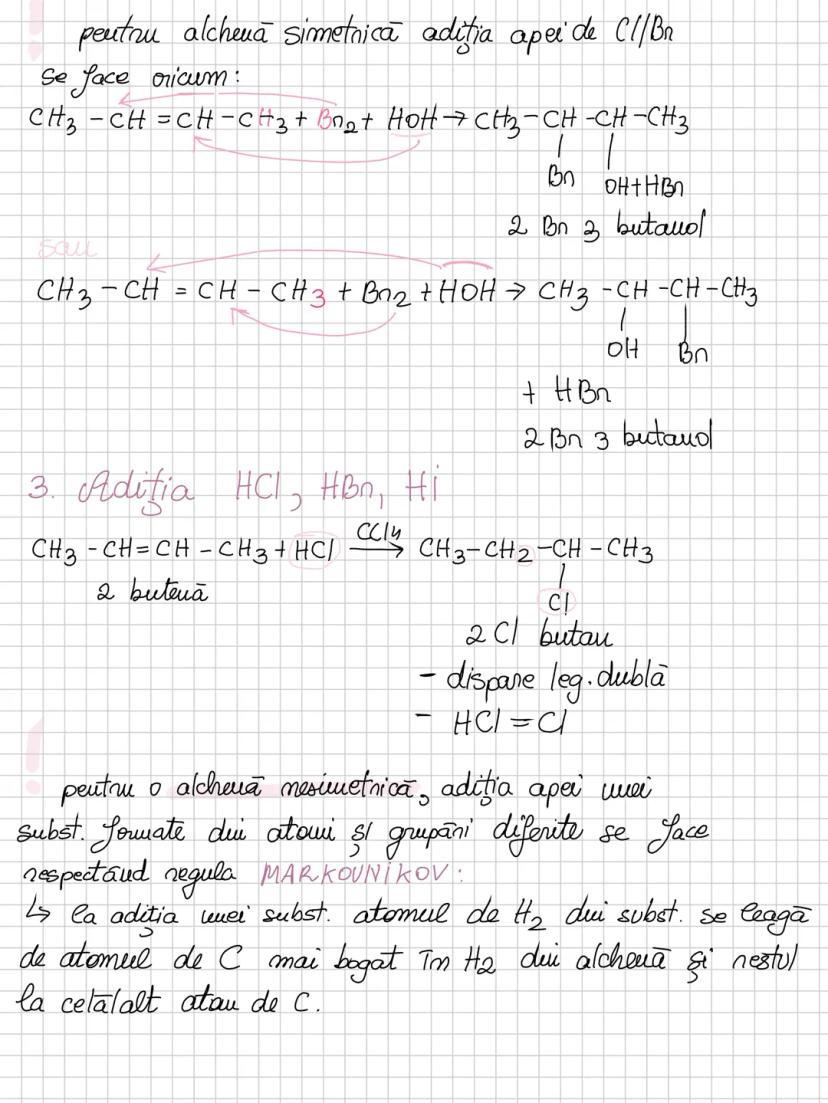 ! pentru alchenă simetrică adiția apei de Cl//Br
se face oricum:
CH3 - CH = CH - CH3 + Br2 + HOH → CH3 - CH - CH - CH3
Br OH + HBr
2 Br 3 butanol
sau
CH3 - CH = CH - CH3 + Br2 + HOH → CH3 - CH - CH - CH3
OH Br
+ HBr
2 Br 3 butanol
3. Adiția HCl, HBr, Hi
CH3 - CH = CH - CH3 + HCl CCl4→ CH3 - CH2 - CH - CH3
2 butenă Cl
2 Cl butan
- dispare leg. dublă
- HCl = Cl
! pentru o alchenă nesimetrică, adiția apei unei
subst. formate din atomi și grupări diferite se face
respectând regula MARKOVNIKOV:
↳ la adiția unei subst. atomul de H2 din subst. se leagă
de atomul de C mai bogat îm H2 din alchenă și restul
la celălalt atan de C.